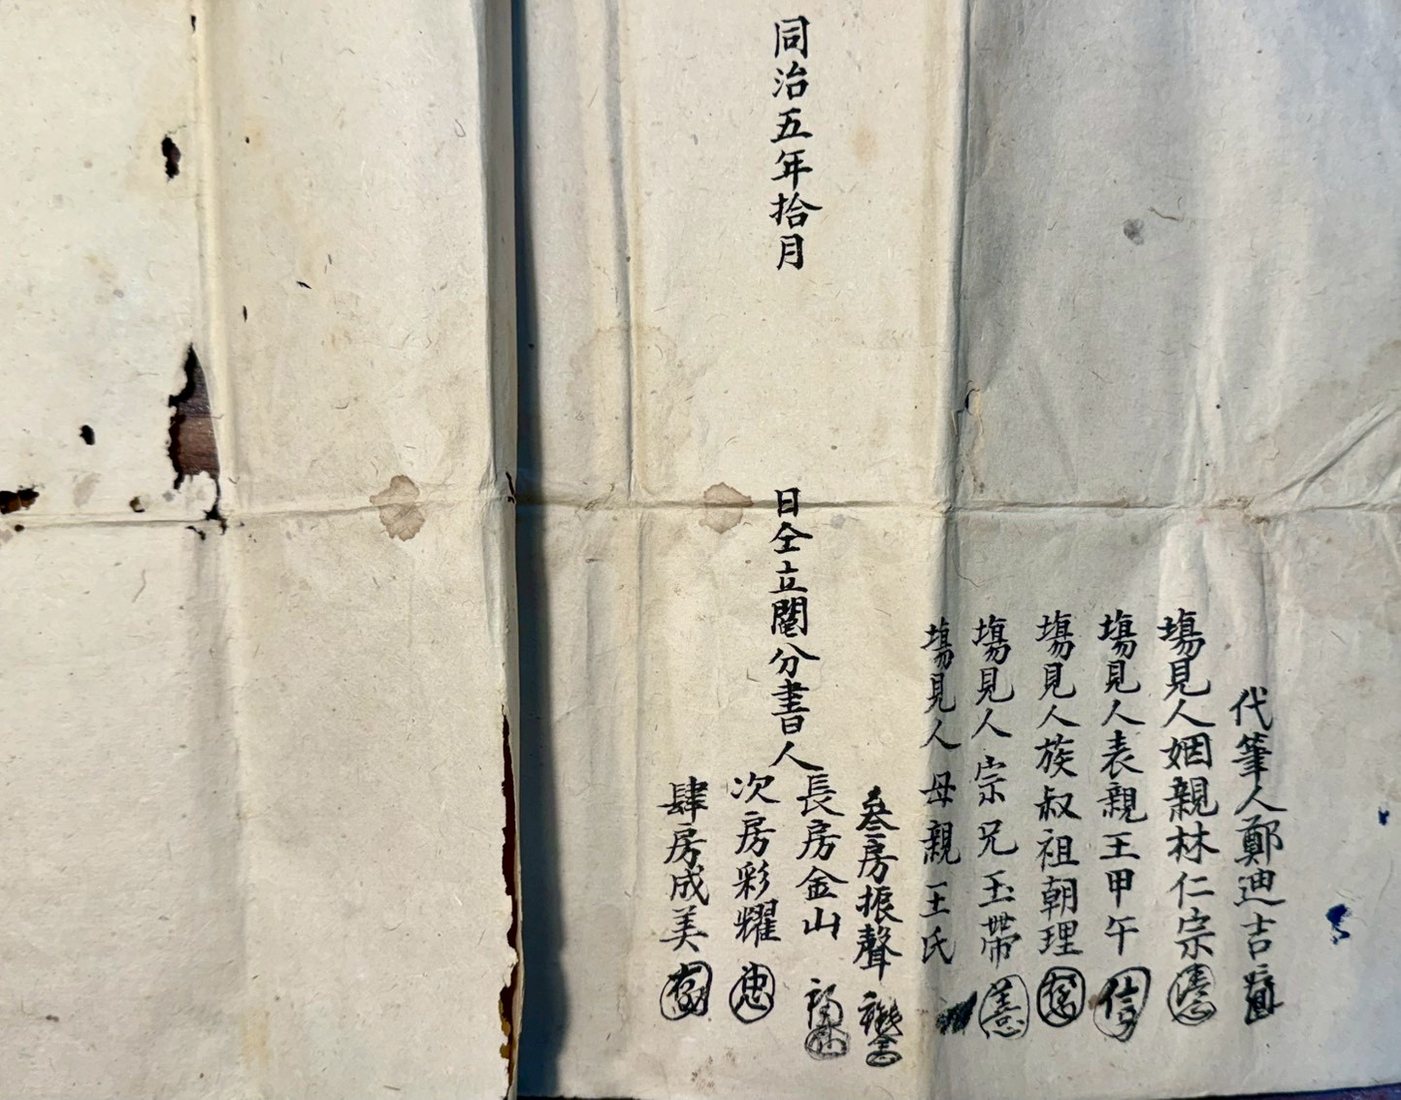 代筆人鄭迪吉
塲見人姻親林仁宗
塲見人表親王甲午
塲見人族叔祖朝理
塲見人宗兄玉帶
塲見人母親王氏
同治五年拾月
日仝立鬮分書人
叁房振聲
長房金山
次房彩耀
肆房成美